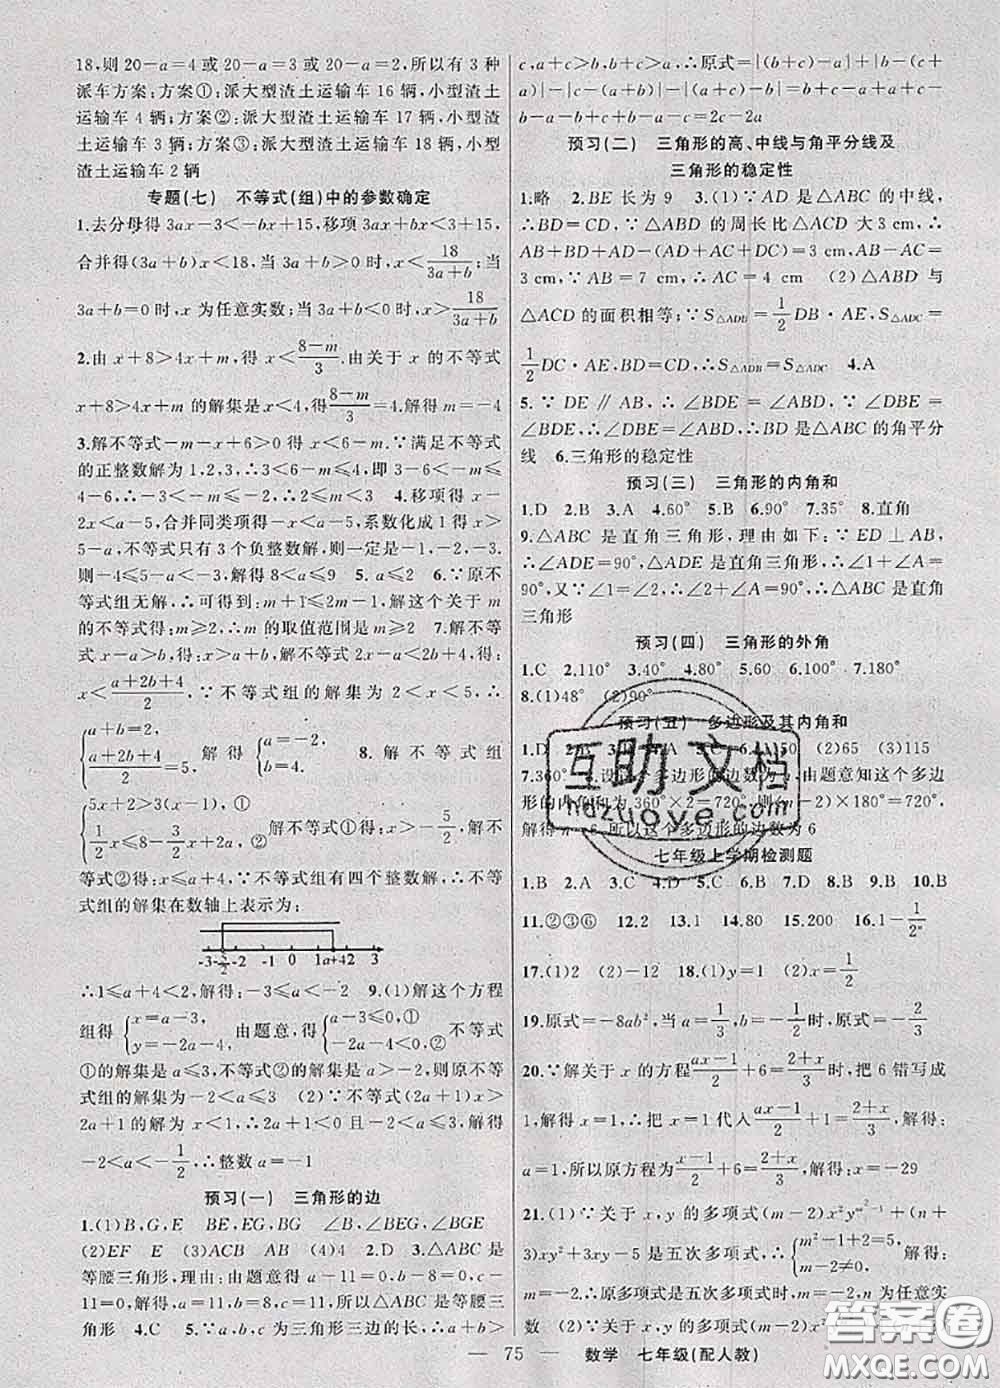 18,则 20-a=4 或 20-a=3 或 20-a=2,所以有 3 种
派车方案;方案①:派大型渣土运输车 16 辆,小型渣土
运输车 4 辆;方案②:派大型渣土运输车 17 辆,小型渣
土运输车 3 辆;方案③:派大型渣土运输车 18 辆,小型
渣土运输车 2 辆
专题(七) 不等式(组)中的参数确定
1.去分母得 3ax-3<-bx+15,移项 3ax+bx<3+15,
合并得(3a+b)x<18,当 3a+b>0 时,x<18/(3a+b);当
3a+b=0 时,x 为任意实数;当 3a+b<0 时,x>18/(3a+b)
2.由 x+8>4x+m,得 x<(8-m)/3.由关于 x 的不等式
x+8>4x+m 的解集是 x<4,得(8-m)/3=4.解得 m=-4
3.解不等式-m-x+6>0 得 x<6-m.∵满足不等式
的正整数解为 1,2,3,∴3<6-m≤4,即 3-6<-m≤
4-6,∴-3<-m≤-2,∴2≤m<3 4.移项得 x-
2x<a-5,合并同类项得-x<a-5,系数化成 1 得 x>
5-a,不等式只有 3 个负整数解,则一定是-1,-2,-3.
则-4≤5-a<-3.解得 8<a≤9 5.a≤2 6.∵原不
等式组无解,∴可得到:m+1≤2m-1,解这个关于 m
的不等式得:m≥2,∴m 的取值范围是 m≥2 7.解不等
式①得:x>a+b,解不等式②得:2x<a+2b+4 得:
x<(a+2b+4)/2.∵不等式组的解集为 2<x<5,∴
{a+b=2, (a+2b+4)/2=5, 解得{a=-2, b=4. 8.解不等式组
{5x+2>3(x-1)① 1/2x≤8-3/2x+2a②解不等式①得:x>-5/2,解不
等式②得:x≤a+4,∵不等式组有四个整数解,∴不等
式组的解集在数轴上表示为:
-3 -5/2 -2 -1 0 1a+42 3
∴1≤a+4<2,解得:-3≤a<-2 9.(1)解这个方程
组得{x=a-3, y=-2a-4,由题意,得{a-3≤0,① -2a-4<0②不等式
①的解集是 a≤3,不等式②的解集是 a>-2,则原不
等式组的解集为-2<a≤3 (2)∵不等式(2a+1)x>
2a+1 的解为 x<1,∴2a+1<0 且-2<a≤3,解得
-2<a<-1/2,∴整数 a=-1
预习(一) 三角形的边
1.(1)B,G,E BE,EG,BG ∠B,∠BEG,∠BGE
(2)EF E (3)ACB AB (4)4 2.D 3.△ABC 是
等腰三角形,理由:由题意得 a-11=0,b-8=0,c
-11=0,解得 a=11,b=8,c=11,所以△ABC 是等腰三
角形 4.C 5.∵a,b,c 为三角形三边的长,∴a+b>
c,a+c>b,b+c>a,∴原式=|(b+c)-a|+|b-(c+
a)|-|c-(a+b)|-|(a+c)-b|=b+c-a+a+c-
b-a-b+c+b-a-c=2c-2a
预习(二) 三角形的高、中线与角平分线及
三角形的稳定性
1.略 2.BE 长为 9 3.(1)∵AD 是△ABC 的中线,
∴BD=CD,∵△ABD 的周长比△ACD 大 3 cm,∴
AB+BD+AD-(AD+AC+DC)=3 cm,AB-AC=
3 cm,∵AB=7 cm,∴AC=4 cm (2)△ABD 与
△ACD 的面积相等;∵S△ADB=1/2DB·AE,S△ADC=
1/2DC·AE,BD=CD,∴S△ADB=S△ADC 4.A
5.∵DE∥AB,∴∠BDE=∠ABD,∵∠DBE=
∠BDE,∴∠DBE=∠ABD,∴BD 是△ABC 的角平分
线 6.三角形的稳定性
预习(三) 三角形的内角和
1.D 2.B 3.A 4.60° 5.B 6.90° 7.35° 8.直角
9.△ABC 是直角三角形,理由如下:∵ED⊥AB,
∴∠ADE=90°,△ADE 是直角三角形,∴∠1+∠A=
90°,又∵∠1=∠2,∴∠2+∠A=90°,∴△ABC 是直角
三角形
预习(四) 三角形的外角
1.C 2.110° 3.40° 4.80° 5.60 6.100° 7.180°
8.(1)48° (2)90°
预习(五) 多边形及其内角和
(2)65 (3)115
解得 n=6,所以这个多边形的边数为 6
七年级上学期检测题
1.B 2.A 3.C 4.D 5.C 6.B 7.D 8.D 9.B 10.B
11.②③⑥ 12.2 13.1 14.80 15.200 16.1-1/2ⁿ
17.(1)2 (2)-12 18.(1)y=1 (2)x=1/2
19.原式=-8ab²,当 a=1/3,b=-1/2时,原式=-2/3
20.∵解关于 x 的方程(ax-1)/2+6=(2+x)/3时,把 6 错写成
1,解得 x=1,∴把 x=1 代入(ax-1)/2+1=(2+x)/3,解得:
a=1,所以原方程为(x-1)/2+6=(2+x)/3,解得:x=-29
21.(1)∵关于 x,y 的多项式(m-2)x²y^(m²-1)+(n+
3)xy²+3xy-5 是五次多项式,∴{m²-1+2=5, m-2≠0, 解得:
m=-2.原多项式是五次多项式,∴m=-2,n 为任意实
数 (2)∵关于 x,y 的多项式(m-2)x²
— 75 — 数学 七年级(配人教)
互助文档
hdzuoye.com
答案圈
MXQE.COM